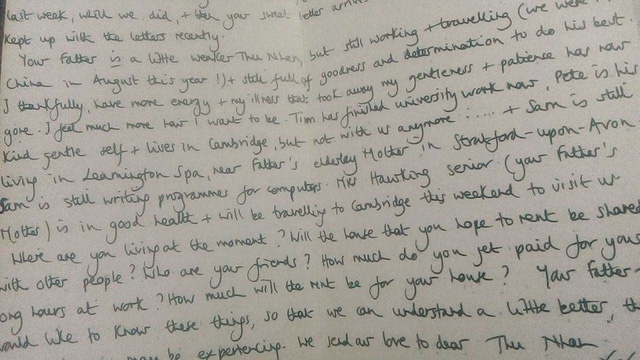 last week, which we did, + then your sweet letter
kept up with the letters recently.
Your Father is a little weaker Thu Nhan, but still working + travelling (we were
China in August this year!) + still full of goodness and determination to do his best.
I thankfully, have more energy + my illness that took away my gentleness + patience has now
gone. I feel much more how I want to be. Tim has finished university work now, Pete is his
kind gentle self + lives in Cambridge, but not with us anymore ..... + Sam is still
living in Leamington Spa, near Father's elderley Mother in Stratford-upon-Avon.
Sam is still writing programmes for computers. Mrs Hawking senior (your Father's
Mother) is in good health + will be travelling to Cambridge this weekend to visit us
Where are you living at the moment? Will the house that you hope to rent be shared
with other people? Who are your friends? How much do you get paid for your
ong hours at work? How much will the rent be for your house? Your Father
ould like to know these things, so that we can understand a little better, th
may be experiencing. We send our love to dear Thu Nhan.